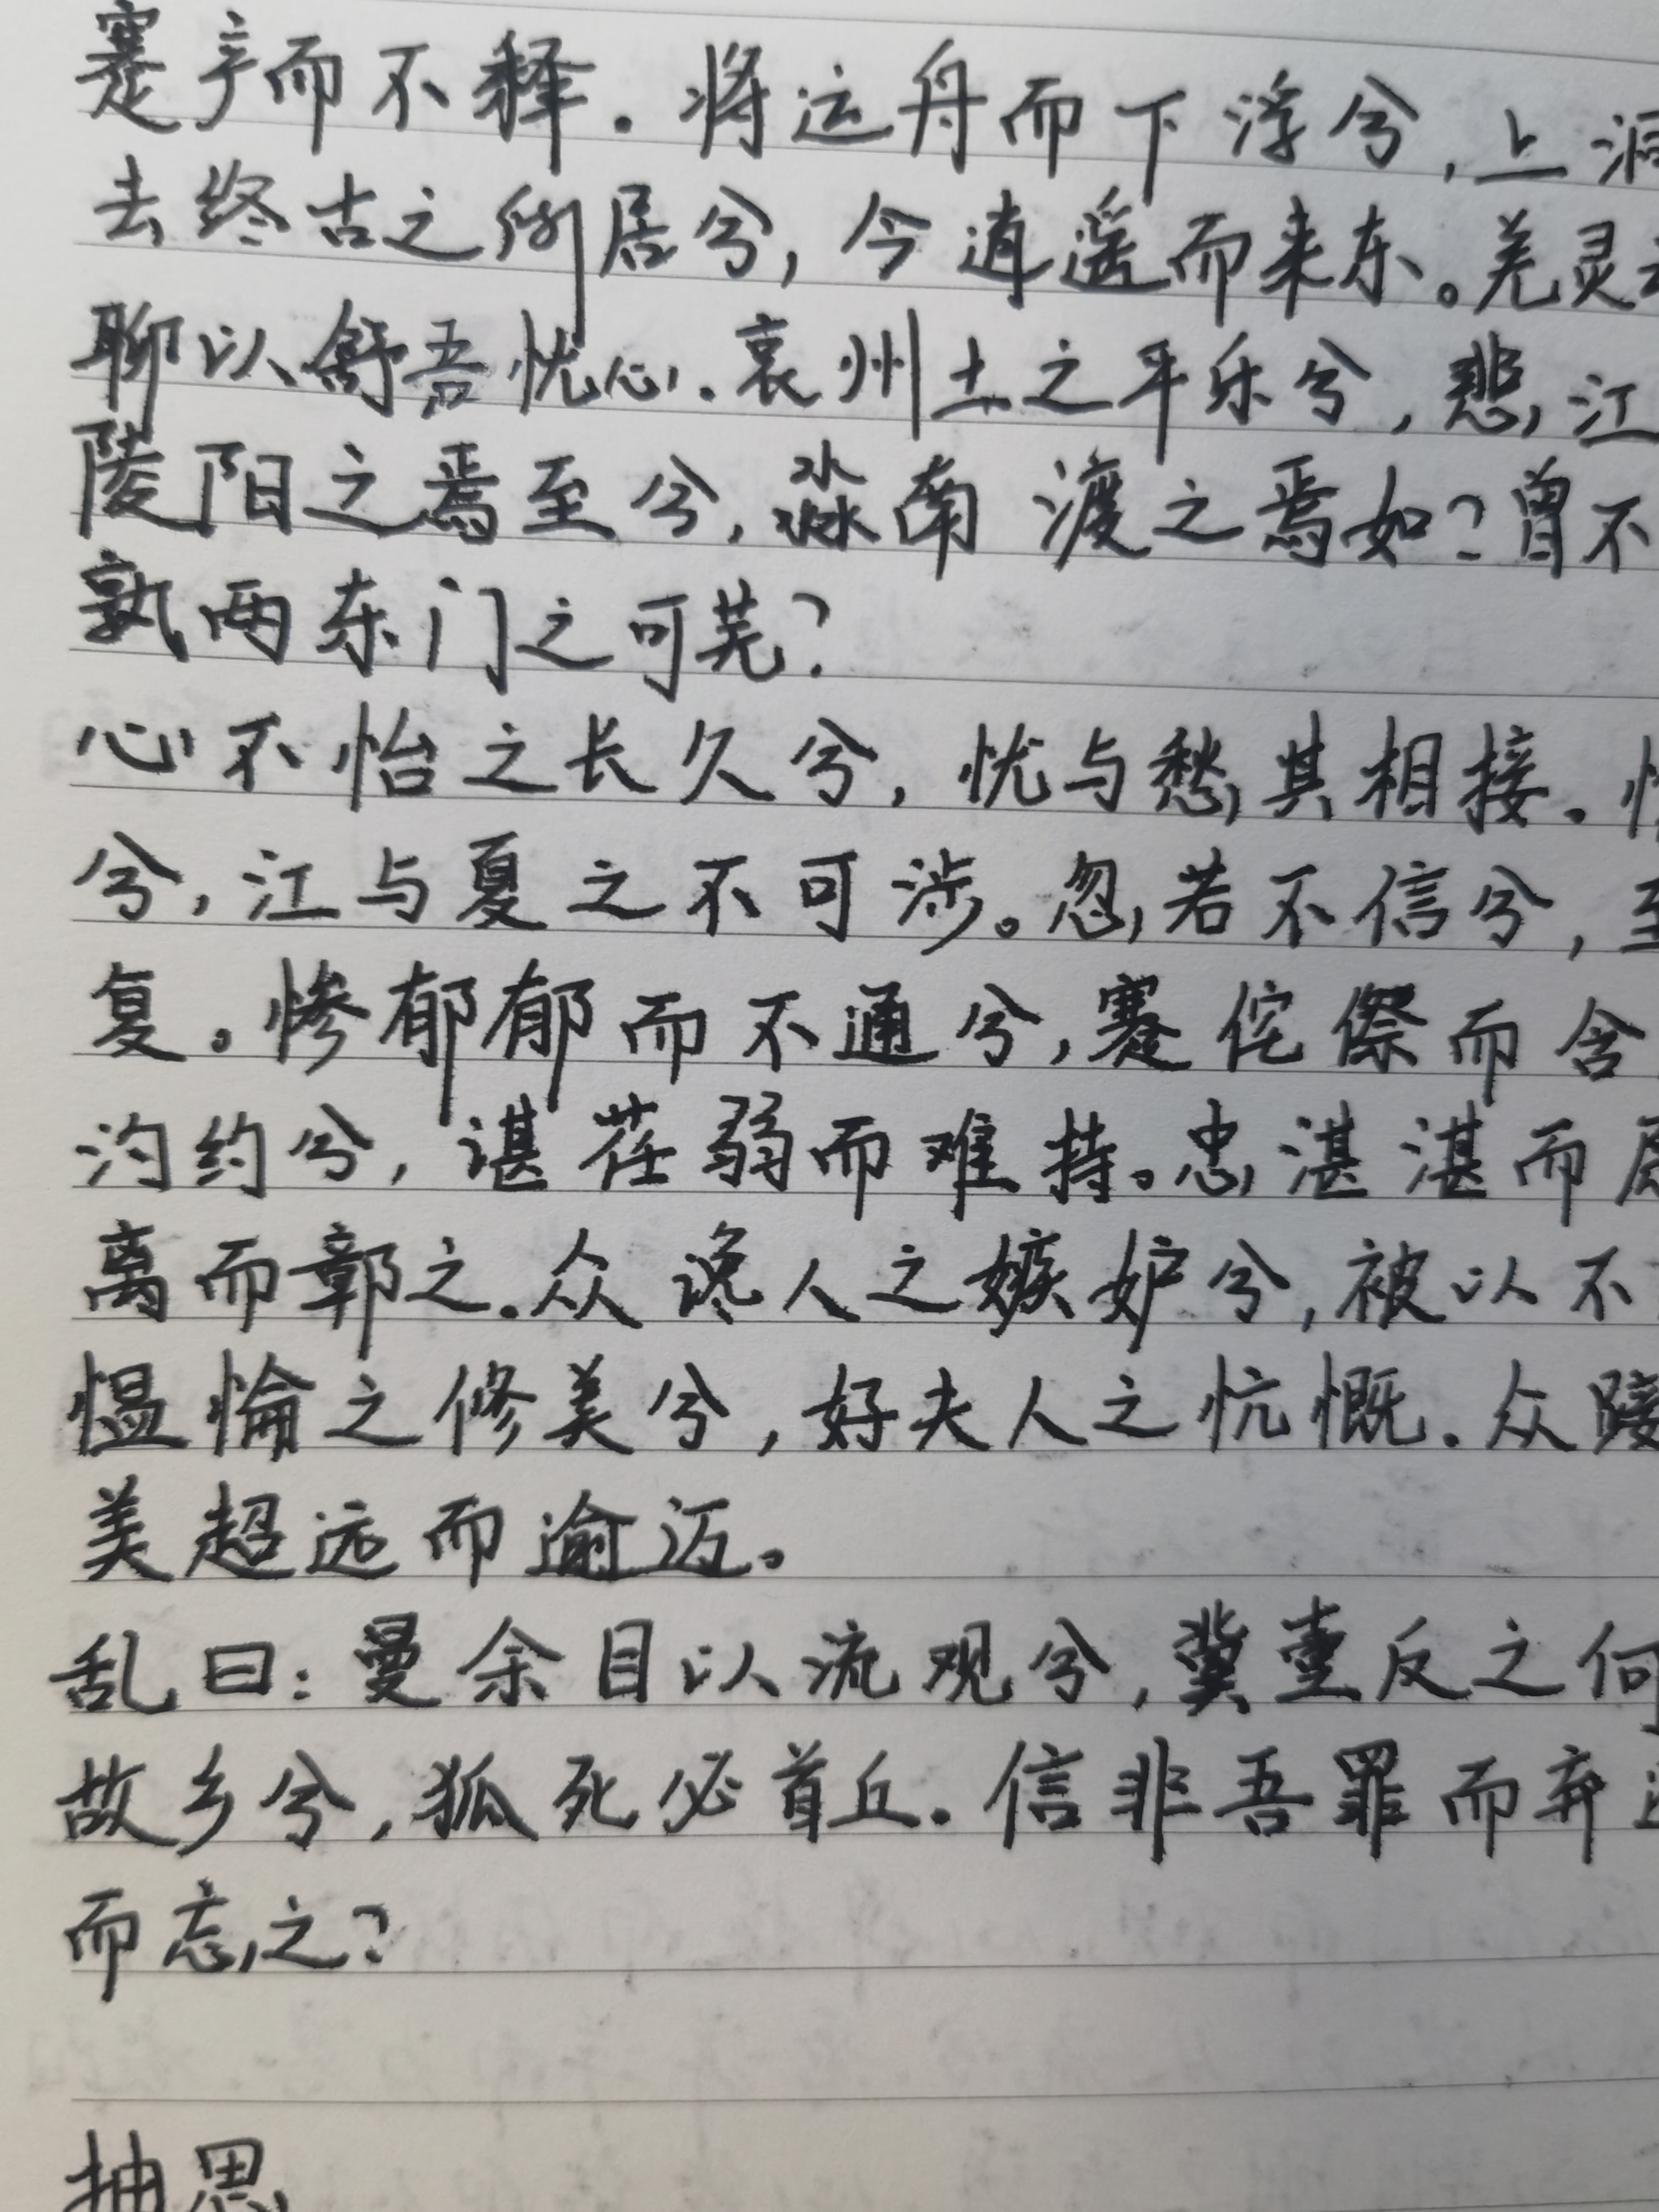 蹇产而不释。将运舟而下浮兮,上洞
去终古之所居兮,今逍遥而来东。羌灵
聊以舒吾忧心。哀州土之平乐兮,悲江
陵阳之焉至兮,淼南渡之焉如?曾不
孰两东门之可芜?
心不怡之长久兮,忧与愁其相接。
兮,江与夏之不可涉。忽若不信兮,至
复。惨郁郁而不通兮,蹇侘傺而含
汋约兮,谌荏弱而难持。忠湛湛而
离而鄣之。众谗人之嫉妒兮,被以不
愠惀之修美兮,好夫人之忼慨。众踥
美超远而逾迈。
乱曰:曼余目以流观兮,冀壹反之何
故乡兮,狐死必首丘。信非吾罪而弃
而忘之?
抽思